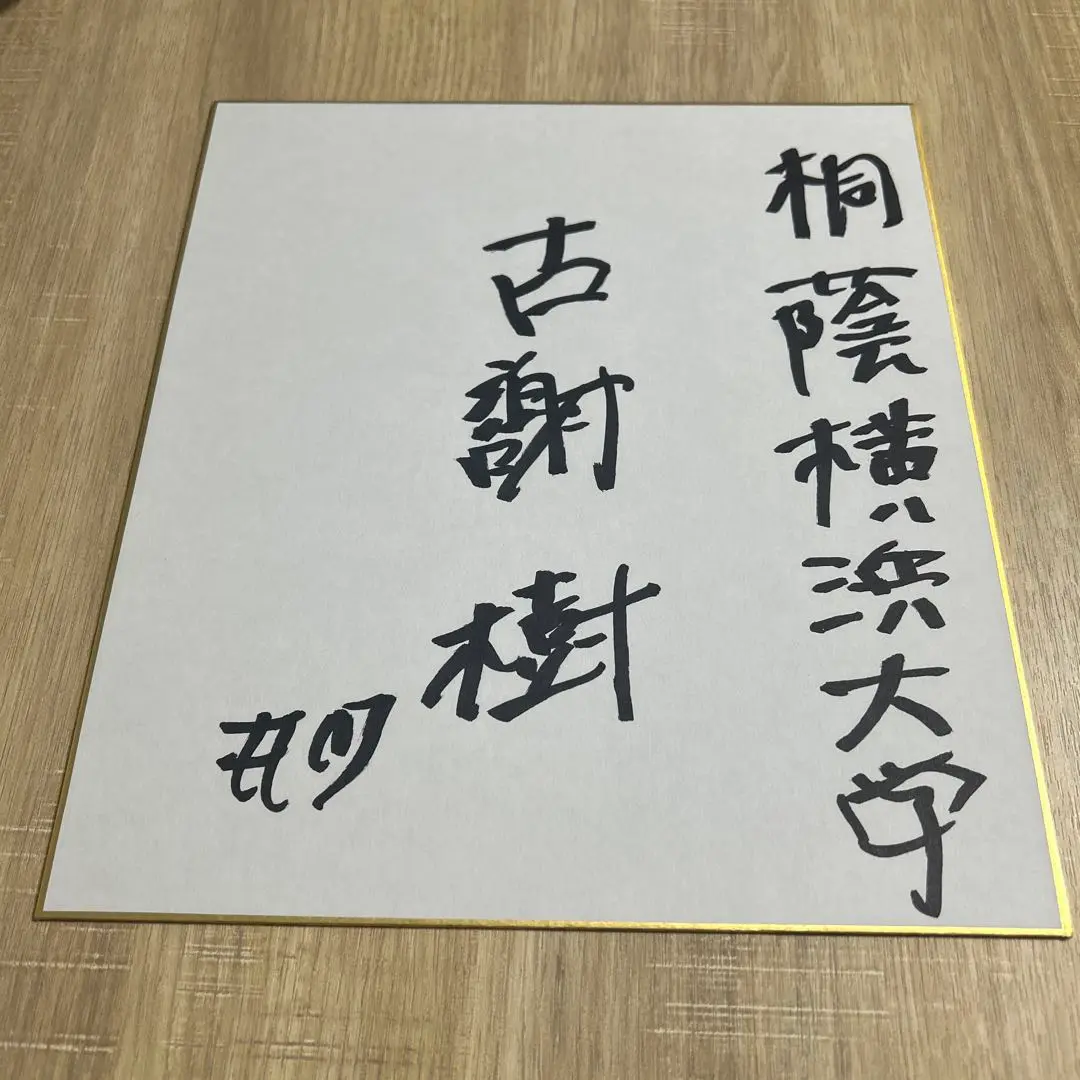 桐蔭横浜大学
古謝樹